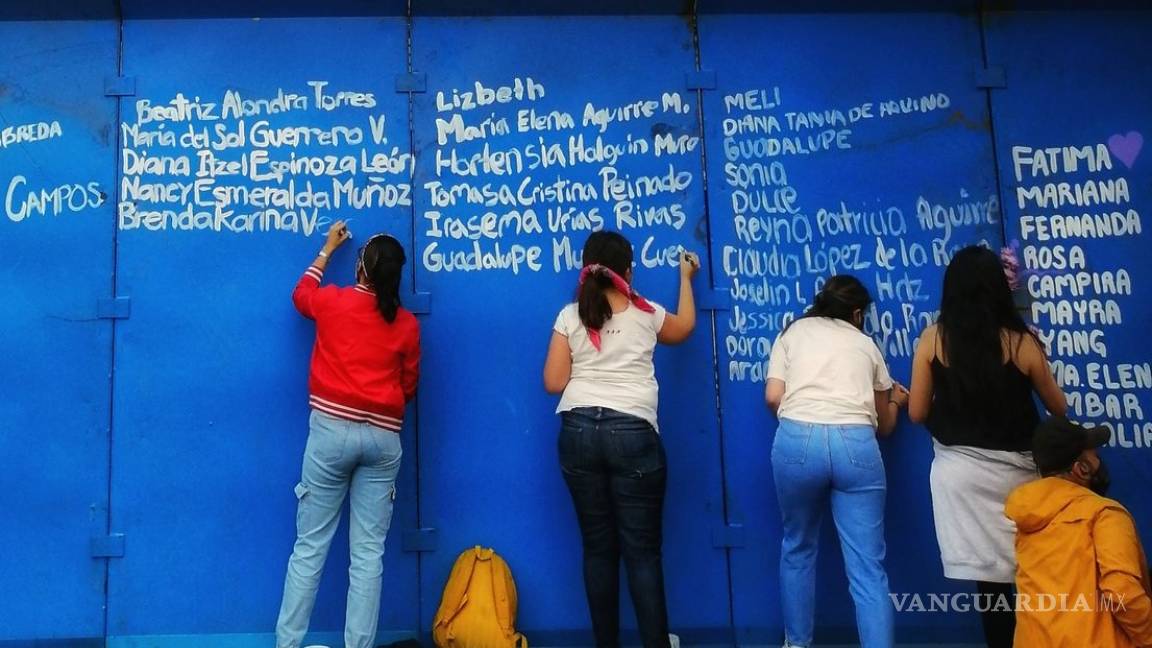 BREDA
CAMPOS
Beatriz Alondra Torres
María del Sol Guerrero V.
Diana Itzel Espinoza León
Nancy Esmeralda Muñoz
Brenda Karina
Lizbeth
María Elena Aguirre M.
Hortensia Holguin Muro
Tomasa Cristina Peinado
Irasema Urias Rivas
Guadalupe
MELI
DIANA TANIA DE AQUINO
GUADALUPE
SONIA
DULCE
Reyna Patricia Aguirre
Claudia López de la
Joselin
Jessica
FATIMA
MARIANA
FERNANDA
ROSA
CAMPIRA
MAYRA
YANG
MA. ELEN
MBAR
VANGUARDIA MX